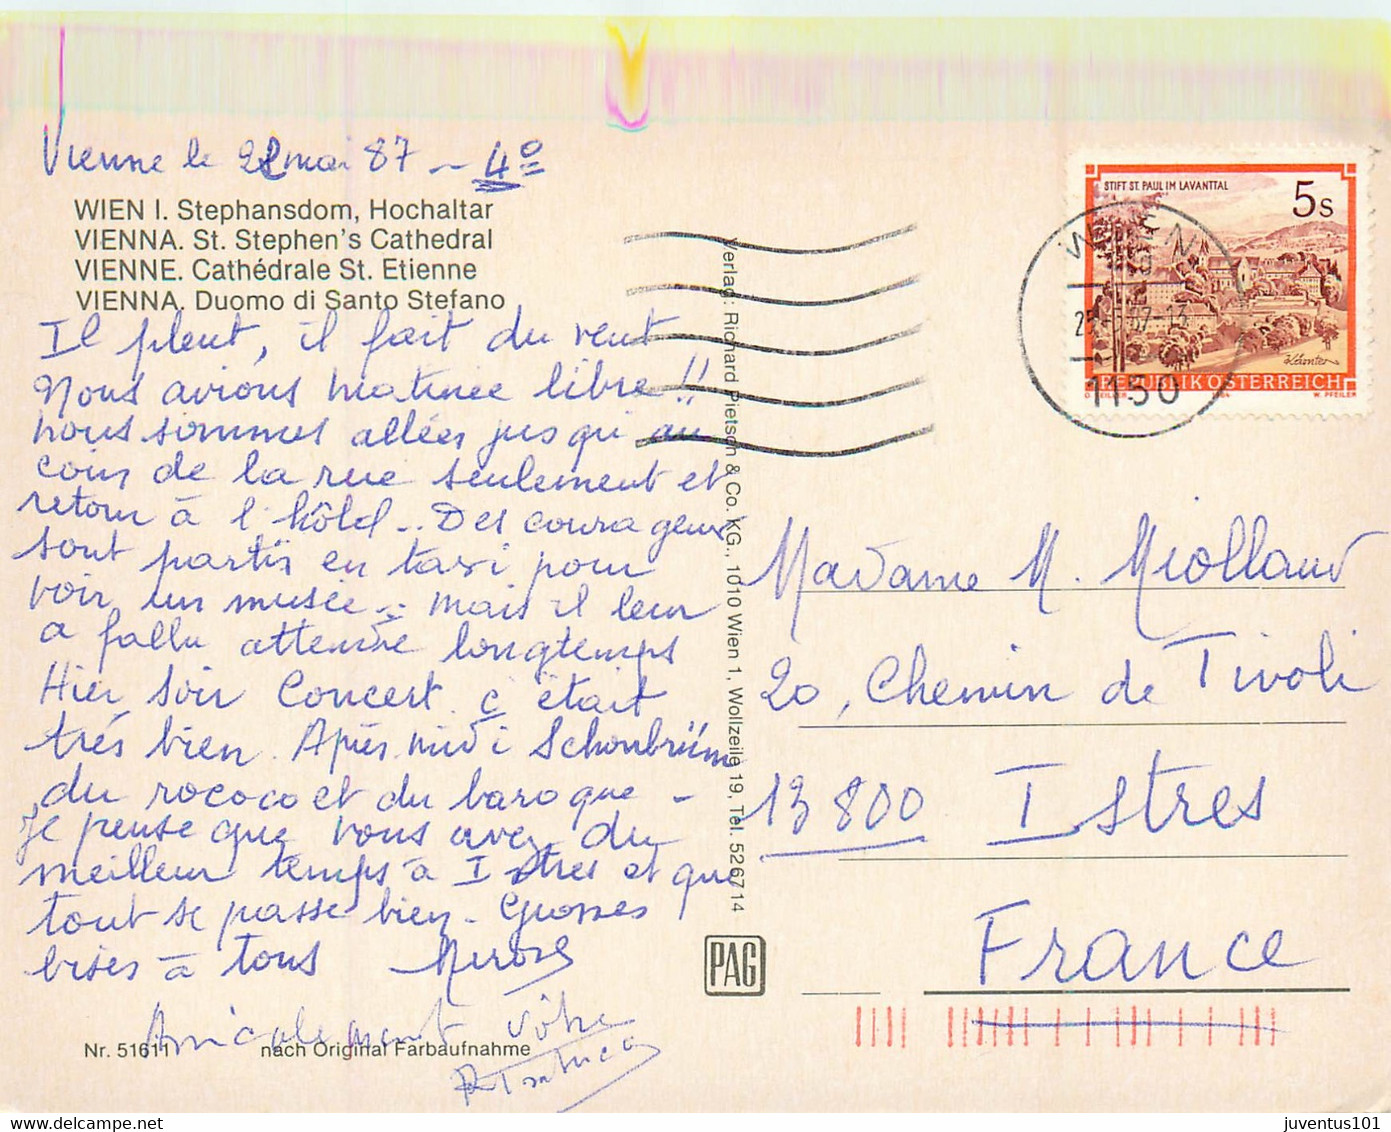 Vienne le 22 mai 87 - 4°
WIEN I. Stephansdom, Hochaltar
VIENNA. St. Stephen's Cathedral
VIENNE. Cathédrale St. Etienne
VIENNA. Duomo di Santo Stefano
Il pleut, il fait du vent
Nous avions matinée libre!!
nous sommes allées jusqu'au
coin de la rue seulement et
retour à l'hôtel.. Des courageux
sont partis en taxi pour
voir un musée.. mais il leur
a fallu attendre longtemps
Hier soir Concert c'était
très bien. Après midi Schonbrünn
du rococo et du baroque -
Je pense que vous avez du
meilleur temps à Istres et que
tout se passe bien - Grosses
bises à tous
Amicalement vôtre
Nr. 51611
nach Original Farbaufnahme
Verlag: Richard Pietsch & Co. KG., 1010 Wien 1, Wollzeile 19, Tel. 526714
PAG
STIFT ST. PAUL IM LAVANTTAL
5s
REPUBLIK ÖSTERREICH
1984
W. PFEILER
WIEN
1150
Madame M. Miolland
20, Chemin de Tivoli
13800 Istres
France
juventus101